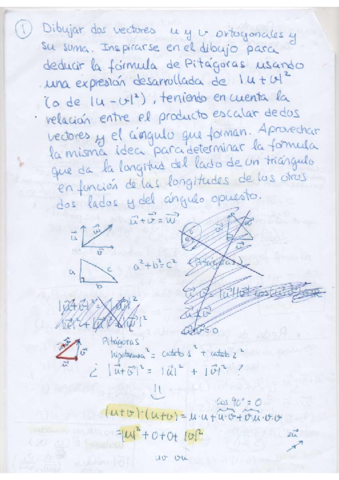 ① Dibujar dos vectores u y v ortogonales y
su suma. Inspirarse en el dibujo para
deducir la fórmula de Pitágoras usando
una expresión desarrollada de |u+v|²
(o de |u-v|²), teniendo en cuenta la
relación entre el producto escalar de dos
vectores y el ángulo que forman. Aprovechar
la misma idea para determinar la fórmula
que da la longitud del lado de un triángulo
en función de las longitudes de los otros
dos lados y del ángulo opuesto.
u⃗+v⃗=w⃗
a c b
a²+b²=c² (Pitágoras)
Pitágoras
hipotenusa² = cateto s² + cateto s²
¿ |u⃗+v⃗|² = |u⃗|² + |v⃗|² ?
cos 90° = 0
(u+v)·(u+v) = u·u+u·v+v·u+v·v
=|u|² +0+0+ |v|²
uv vu